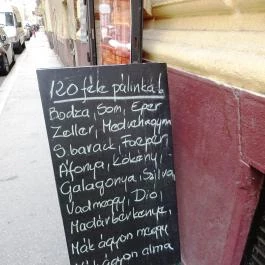 120 féle pálinka!
Bodza, Som, Eper
Zeller, Medvehagyma
S.barack, Faeper,
Áfonya, Kökény,
Galagonya, Szilva,
Vadmeggy, Dió,
Madárberkenye,
Mák ágyon meggy
ágyon alma